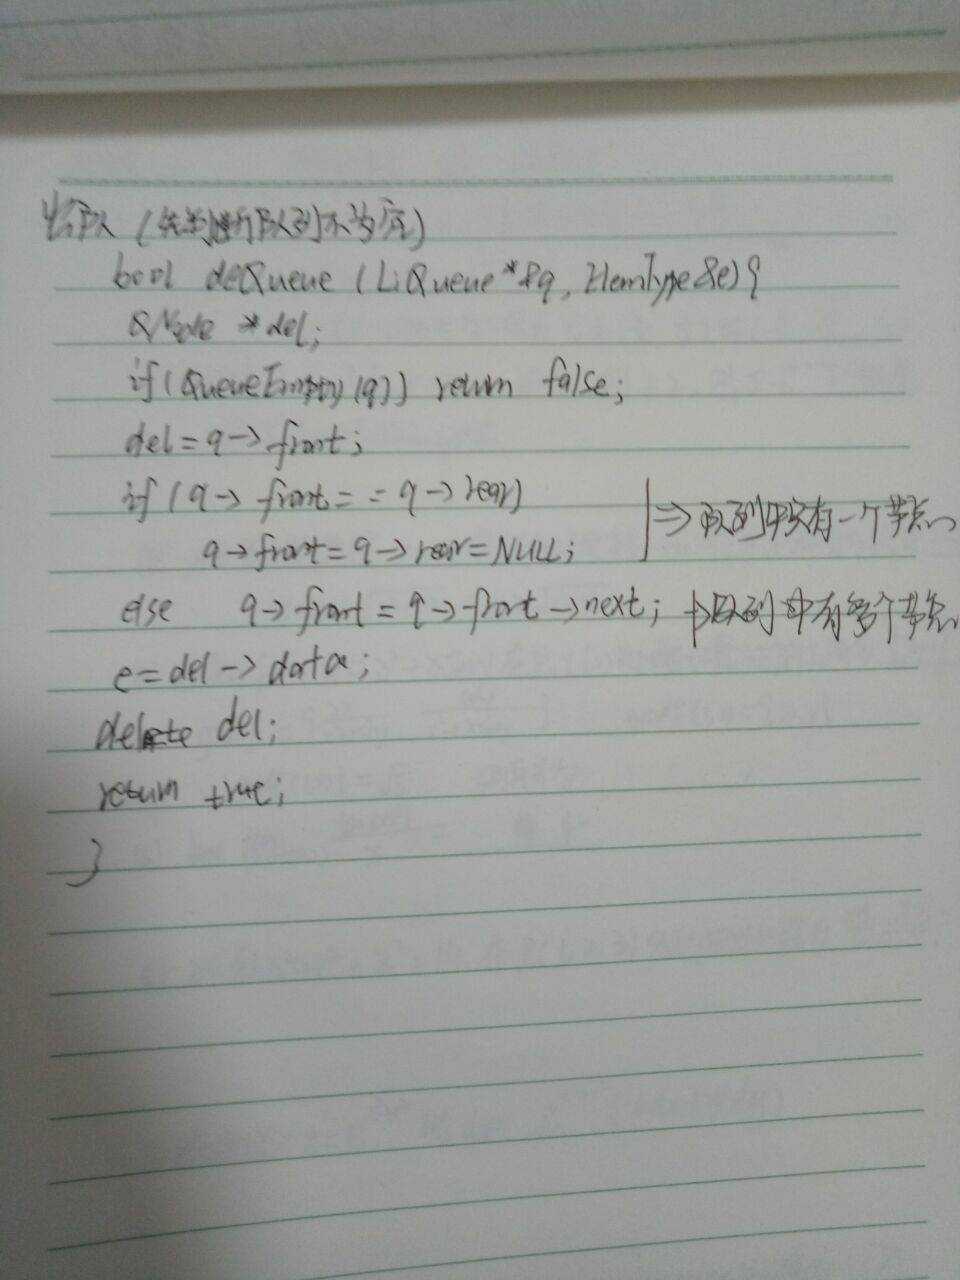 出队（先判断队列不为空）
bool deQueue (LiQueue *&q, ElemType &e){
QNode *del;
if(QueueEmpty(q)) return false;
del=q->front;
if(q->front==q->rear)
q->front=q->rear=NULL; => 队列中只有一个节点
else q->front=q->front->next; => 队列中有多个节点
e=del->data;
delete del;
return true;
}